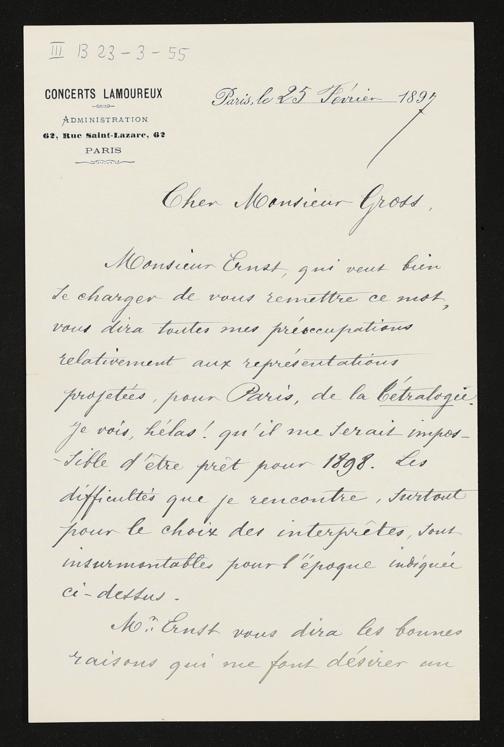 III B 23-3-55
CONCERTS LAMOUREUX
ADMINISTRATION
62, Rue Saint-Lazare, 62
PARIS
Paris, le 25 Février 1897
Cher Monsieur Gross,
Monsieur Ernst, qui veut bien
se charger de vous remettre ce mot,
vous dira toutes mes préoccupations
relativement aux représentations
projetées, pour Paris, de la Tétralogie.
Je vois, hélas! qu'il me serait impos-
-sible d'être prêt pour 1898. Les
difficultés que je rencontre, surtout
pour le choix des interprêtes, sont
insurmontables pour l'époque indiquée
ci-dessus.
Mr. Ernst vous dira les bonnes
raisons qui me font désirer un